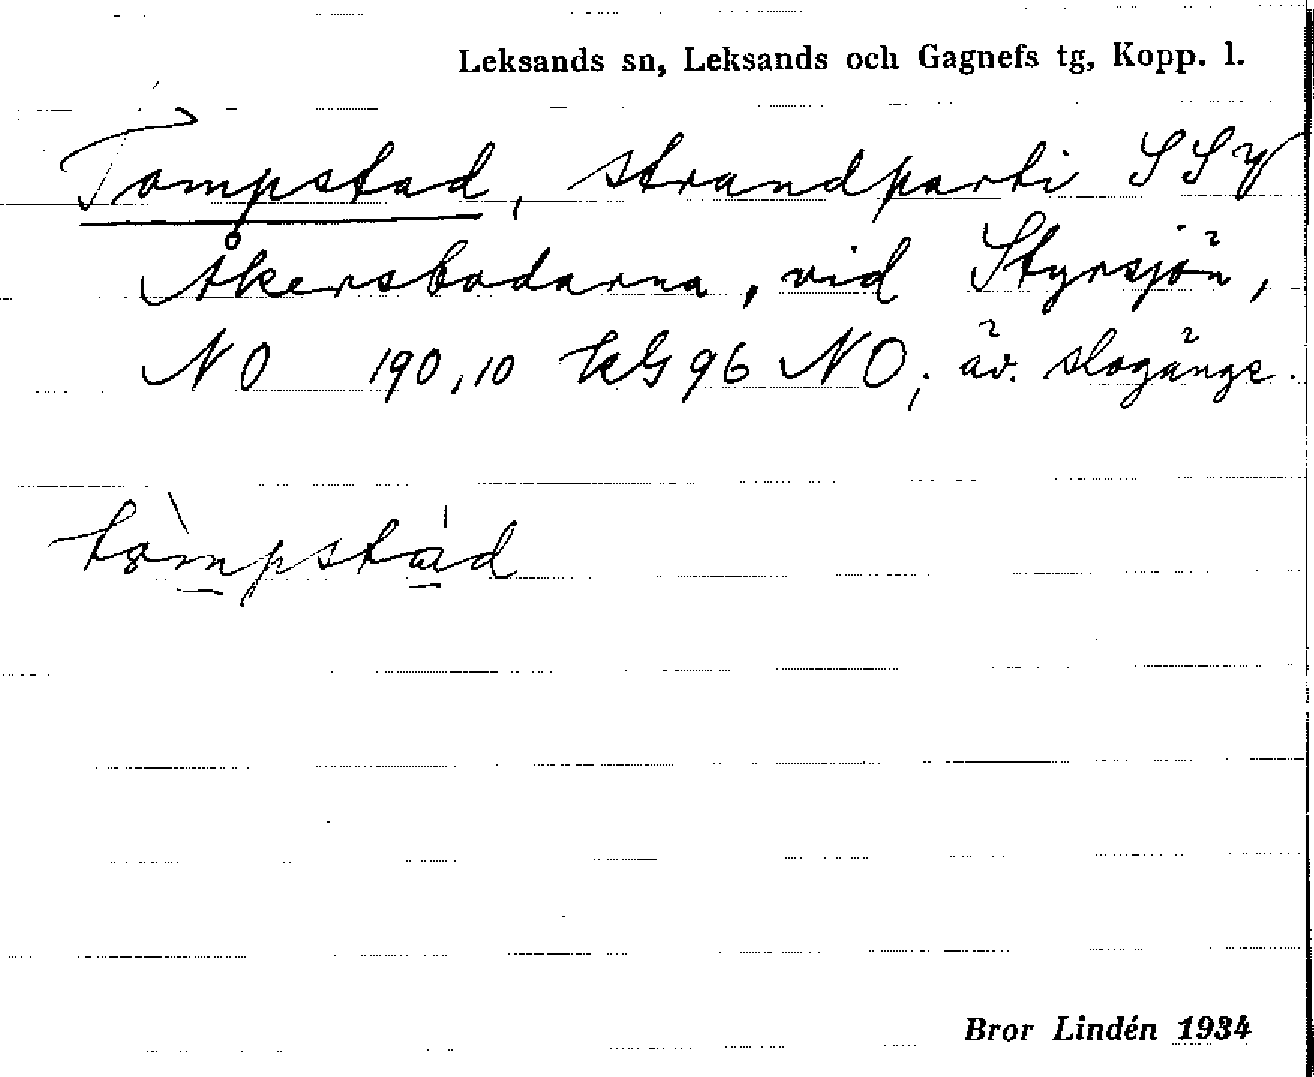 Leksands sn, Leksands och Gagnefs tg, Kopp. l.
Tompstad, strandparti SSV
Åkersbodarna, vid Styrsjön,
NO 190,10 kG 96 NO; äv. slogänge.
tòmpstád
Bror Lindén 1934